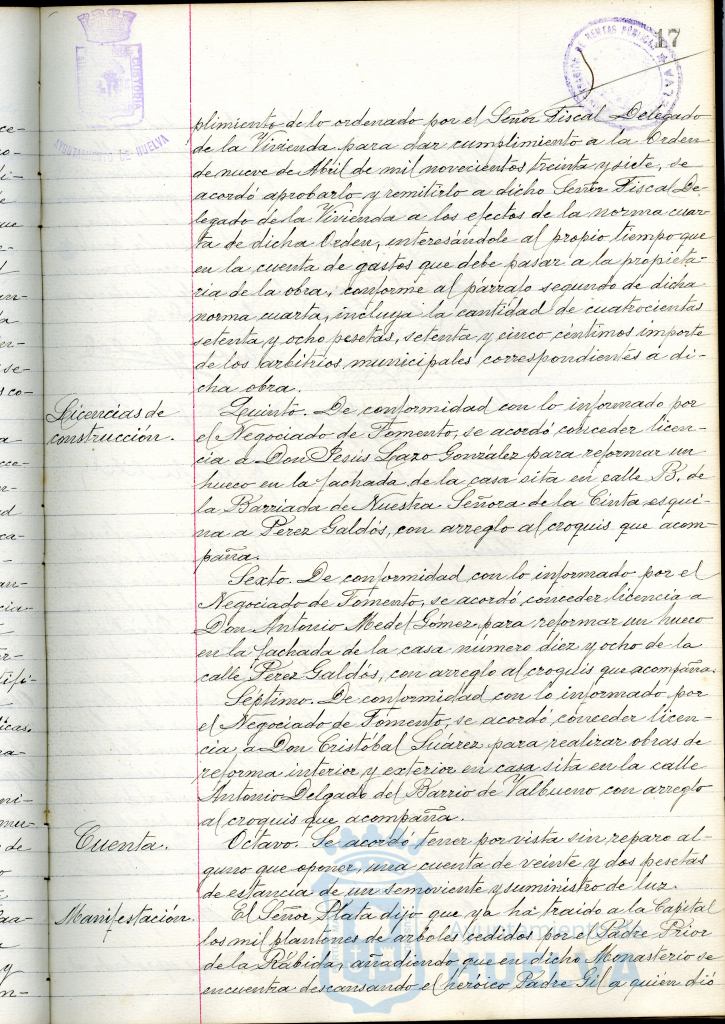 17
AYUNTAMIENTO DE HUELVA
plimiento de lo ordenado por el Señor Fiscal Delegado
de la Vivienda para dar cumplimiento a la Orden
de nueve de Abril de mil novecientos treinta y siete, se
acordó aprobarlo y remitirlo a dicho Señor Fiscal De-
legado de la Vivienda a los efectos de la norma cuar-
ta de dicha Orden, interesándole al propio tiempo que
en la cuenta de gastos que debe pasar a la propieta-
ria de la obra, conforme al párrafo segundo de dicha
norma cuarta, incluya la cantidad de cuatrocientas
setenta y ocho pesetas, setenta y cinco céntimos importe
de los arbitrios municipales correspondientes a di-
cha obra.
Licencias de
construcción.
Quinto. De conformidad con lo informado por
el Negociado de Fomento, se acordó conceder licen-
cia a Don Jesús Lazo Gonzalez para reformar un
hueco en la fachada de la casa sita en calle B. de
la Barriada de Nuestra Señora de la Cinta esqui-
na a Pérez Galdós, con arreglo al croquis que acom-
paña.
Sexto. De conformidad con lo informado por el
Negociado de Fomento, se acordó conceder licencia a
Don Antonio Medel Gómez para reformar un hueco
en la fachada de la casa número diez y ocho de la
calle Pérez Galdós, con arreglo al croquis que acompaña.
Séptimo. De conformidad con lo informado por
el Negociado de Fomento, se acordó conceder licen-
cia a Don Cristóbal Suárez para realizar obras de
reforma interior y exterior en casa sita en la calle
Antonio Delgado del Barrio de Valbueno con arreglo
al croquis que acompaña.
Cuenta.
Octavo. Se acordó tener por vista sin reparo al-
guno que oponer, una cuenta de veinte y dos pesetas
de estancia de un semoviente y suministro de luz.
Manifestación.
El Señor Plata dijo que ya ha traido a la Capital
los mil plantones de arboles cedidos por el Padre Prior
de la Rábida, añadiendo que en dicho Monasterio se
encuentra descansando el heróico Padre Gil a quien dió
Ayuntamiento de
HUELVA